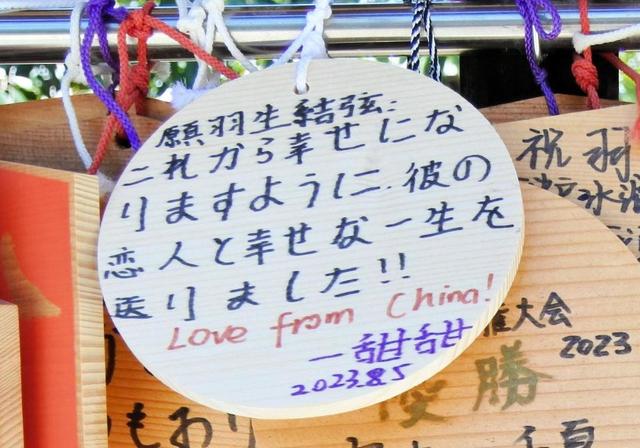 願羽生結弦：
これから幸せにな
りますように．彼の
恋人と幸せな一生を
送りました!!
Love from China!
—甜甜
2023.8.5
祝羽
権大会
2023
優勝
もおり